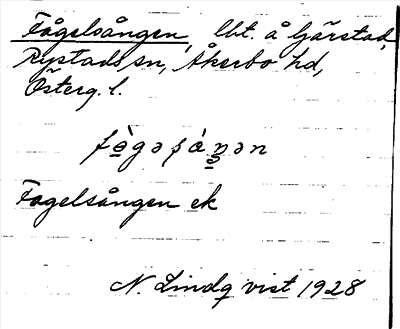 Fågelsången, lbt. å Gärstad,
Rystads sn, Åkerbo hd,
Österg. l.
Fagelsången ek
N. Lindqvist 1928